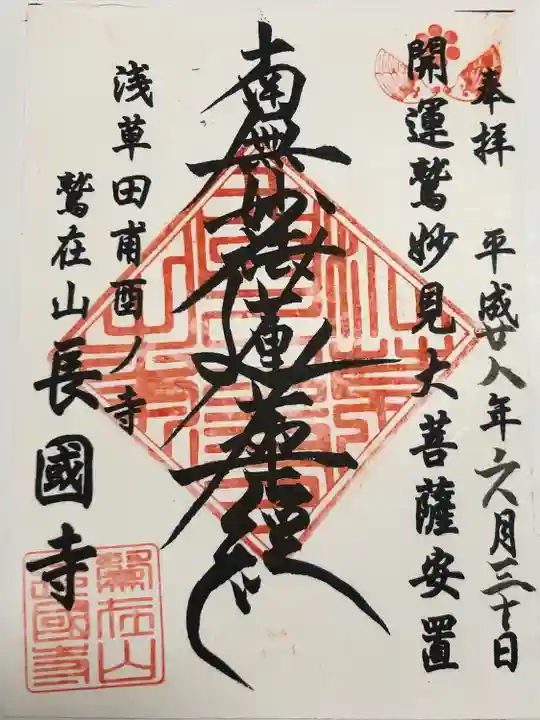 奉拝 平成廿八年六月三十日
開運鷲妙見大菩薩安置
南無妙法蓮華経
浅草田甫酉ノ寺
鷲在山長國寺
鷲在山
長國寺